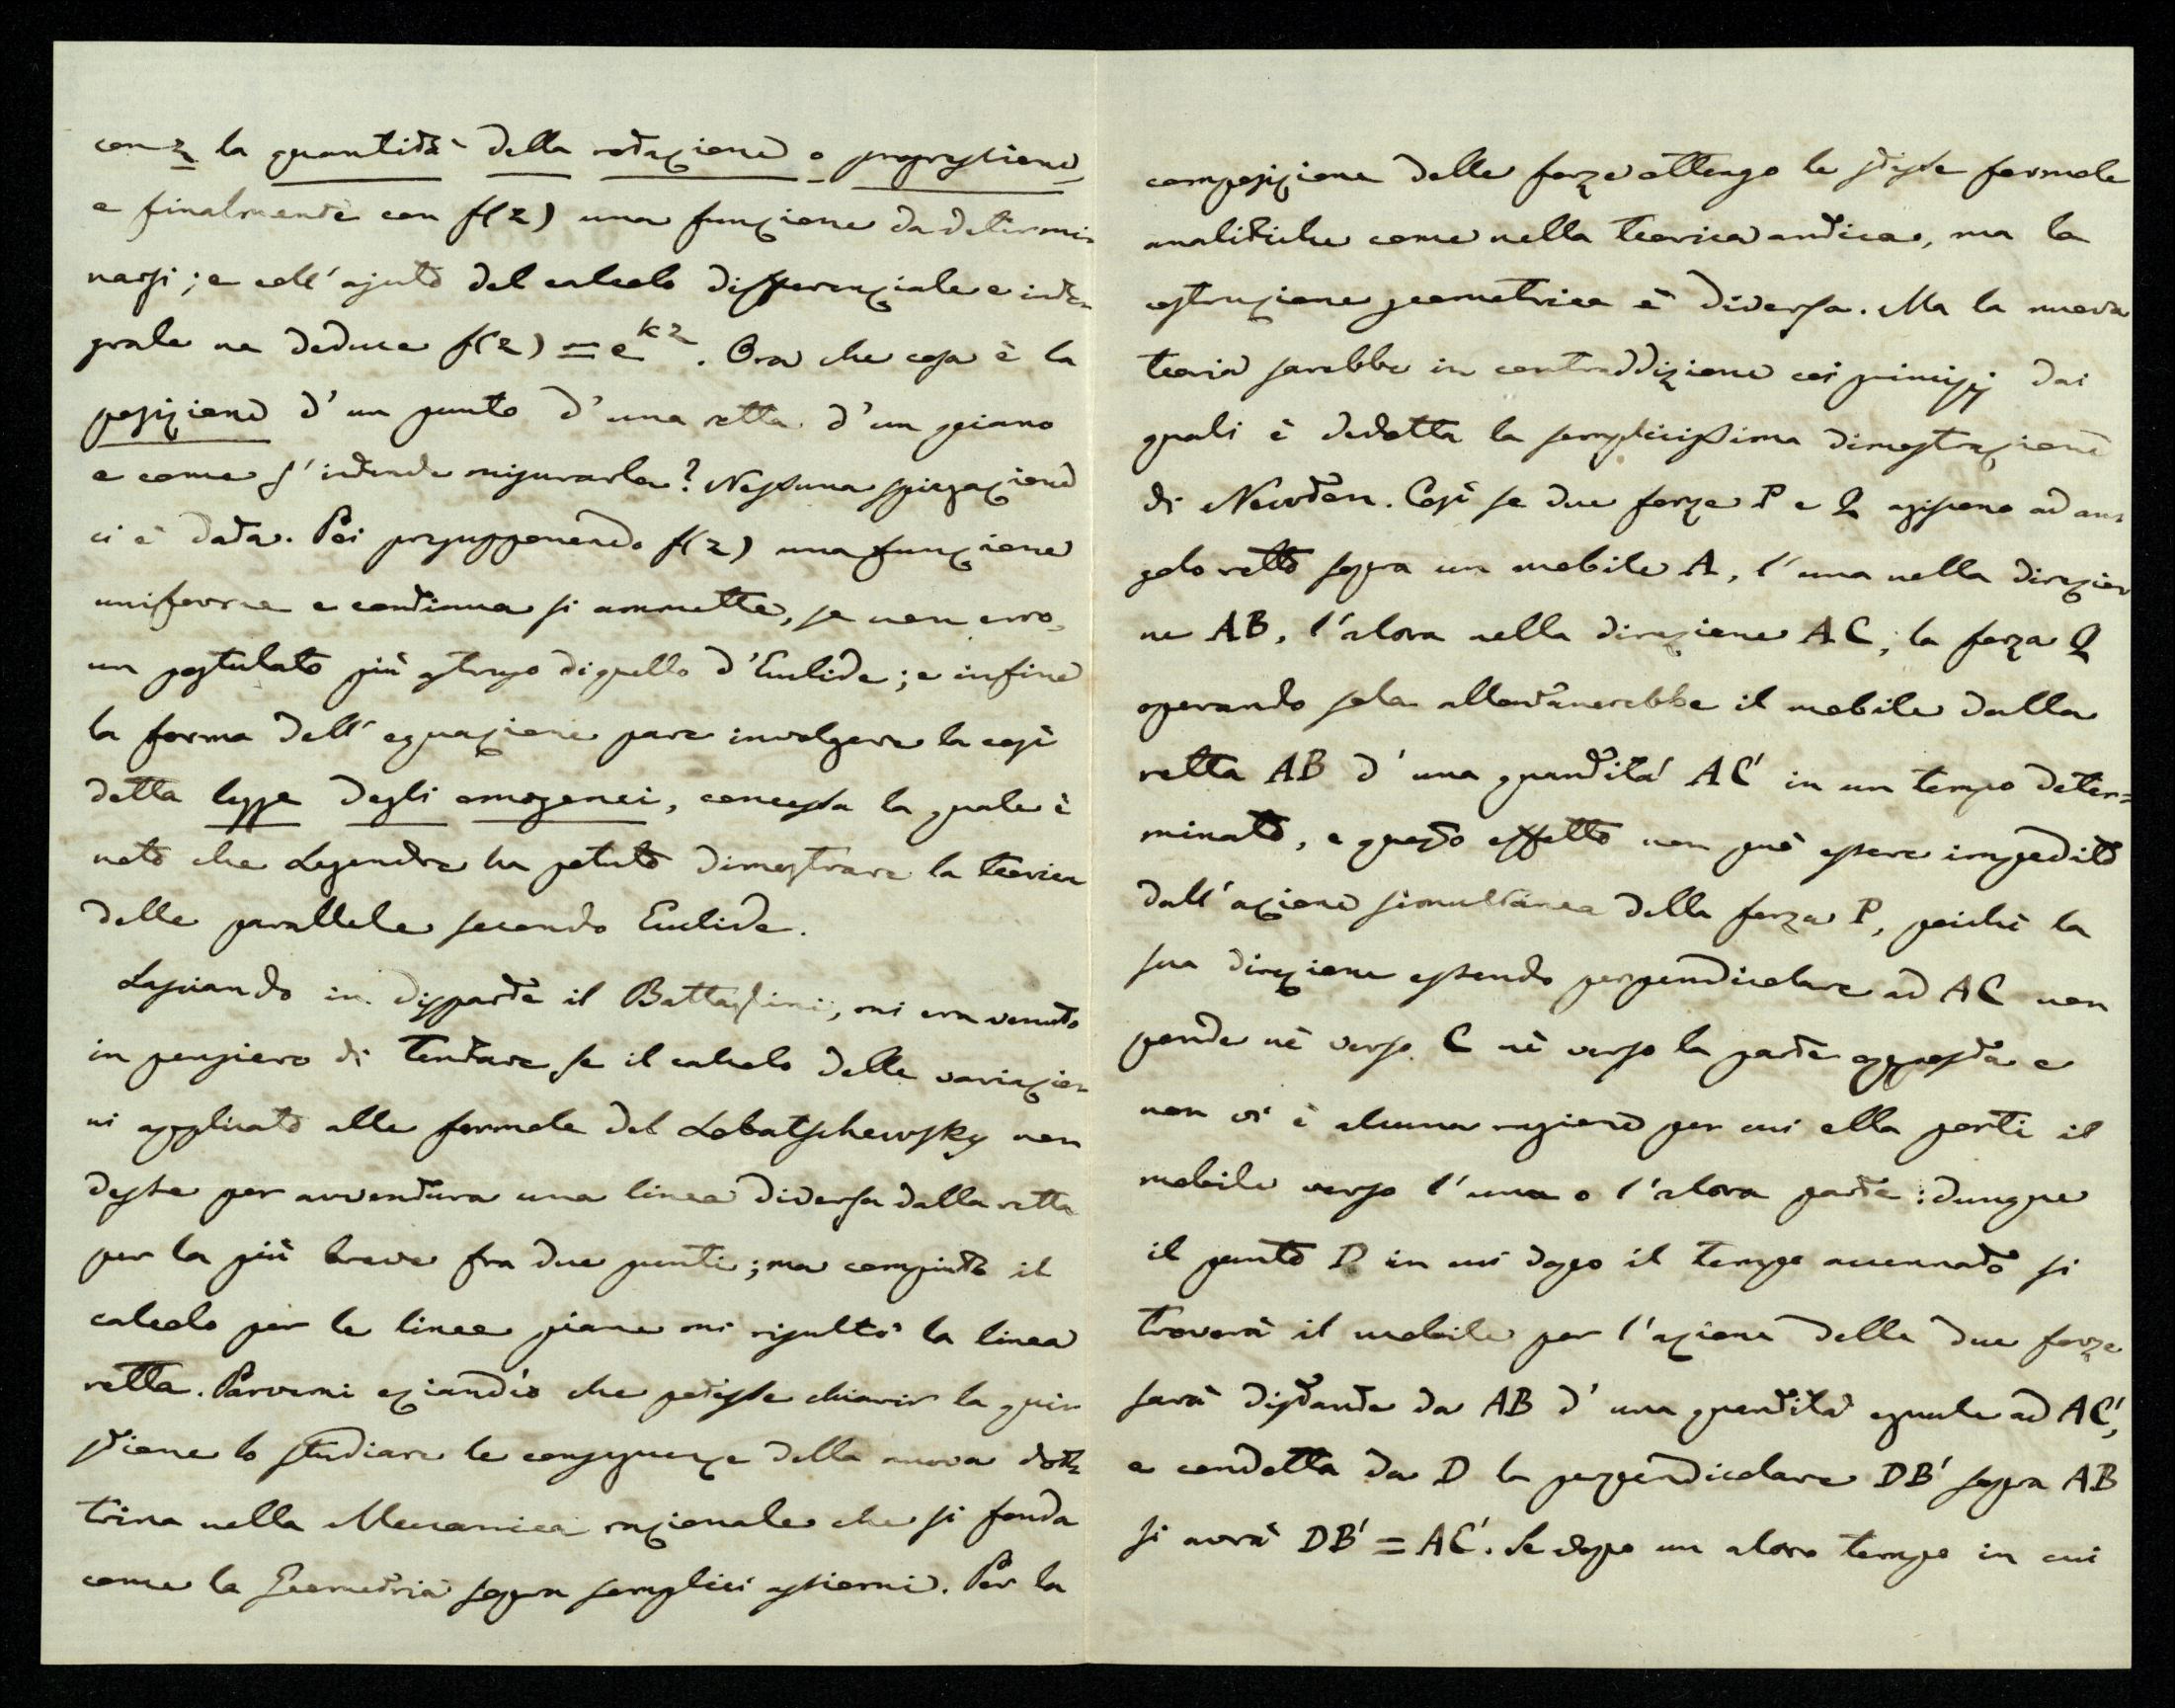 con z la quantità della rotazione o progressione
e finalmente con f(z) una funzione da determi-
narsi; e coll'ajuto del calcolo differenziale e inte-
grale ne deduce f(z) = e^{kz}. Ora che cosa è la
posizione d'un punto d'una retta d'un piano
e come s'intende misurarla? Nessuna spiegazione
ci è data. Poi presupponendo f(z) una funzione
uniforme e continua si ammette, se non erro,
un postulato più astruso di quello d'Euclide; e infine
la forma dell'equazione pare involgere la così
detta legge degli omogenei, concessa la quale è
noto che Legendre ha potuto dimostrare la teorica
delle parallele secondo Euclide.
Lasciando in disparte il Battaglini, mi era venuto
in pensiero di tentare se il calcolo delle variazio-
ni applicato alle formole del Lobatschewsky non
desse per avventura una linea diversa dalla retta
per la più breve fra due punti; ma compiuto il
calcolo per le linee piane mi risultò la linea
retta. Parvemi eziandio che potesse chiarir la qui-
stione lo studiare le conseguenze della nuova dot-
trina nella Meccanica razionale che si fonda
come la Geometria sopra semplici assiomi. Per la
composizione delle forze ottengo le stesse formole
analitiche come nella teorica antica, ma la
costruzione geometrica è diversa. Ma la nuova
teoria sarebbe in contraddizione coi principj dai
quali è dedotta la semplicissima dimostrazione
di Newton. Così se due forze P e Q agiscono ad an-
golo retto sopra un mobile A, l'una nella direzio-
ne AB, l'altra nella direzione AC, la forza Q
operando sola allontanerebbe il mobile dalla
retta AB d'una quantità AC' in un tempo deter=
minato, e questo effetto non può essere impedito
dall'azione simultanea della forza P, poichè la
sua direzione essendo perpendicolare ad AC non
pende nè verso C nè verso la parte opposta e
non vi è alcuna ragione per cui ella porti il
mobile verso l'una o l'altra parte: dunque
il punto D in cui dopo il tempo accennato si
troverà il mobile per l'azione delle due forze
sarà distante da AB d'una quantità eguale ad AC',
e condotta da D la perpendicolare DB' sopra AB
si avrà DB' = AC'. Se dopo un altro tempo in cui